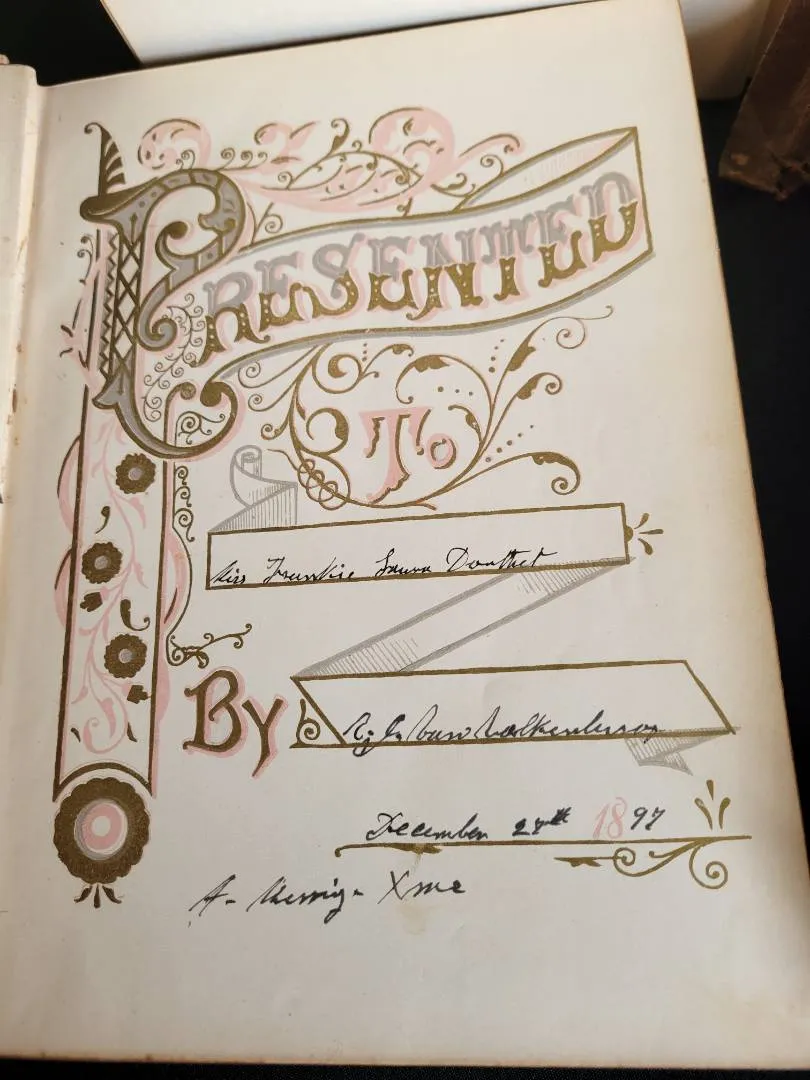 PRESENTED
To
Miss Frankie Laura Douthet
By
Van Valkenburg
December 27th 1897
A - Merry - Xmas